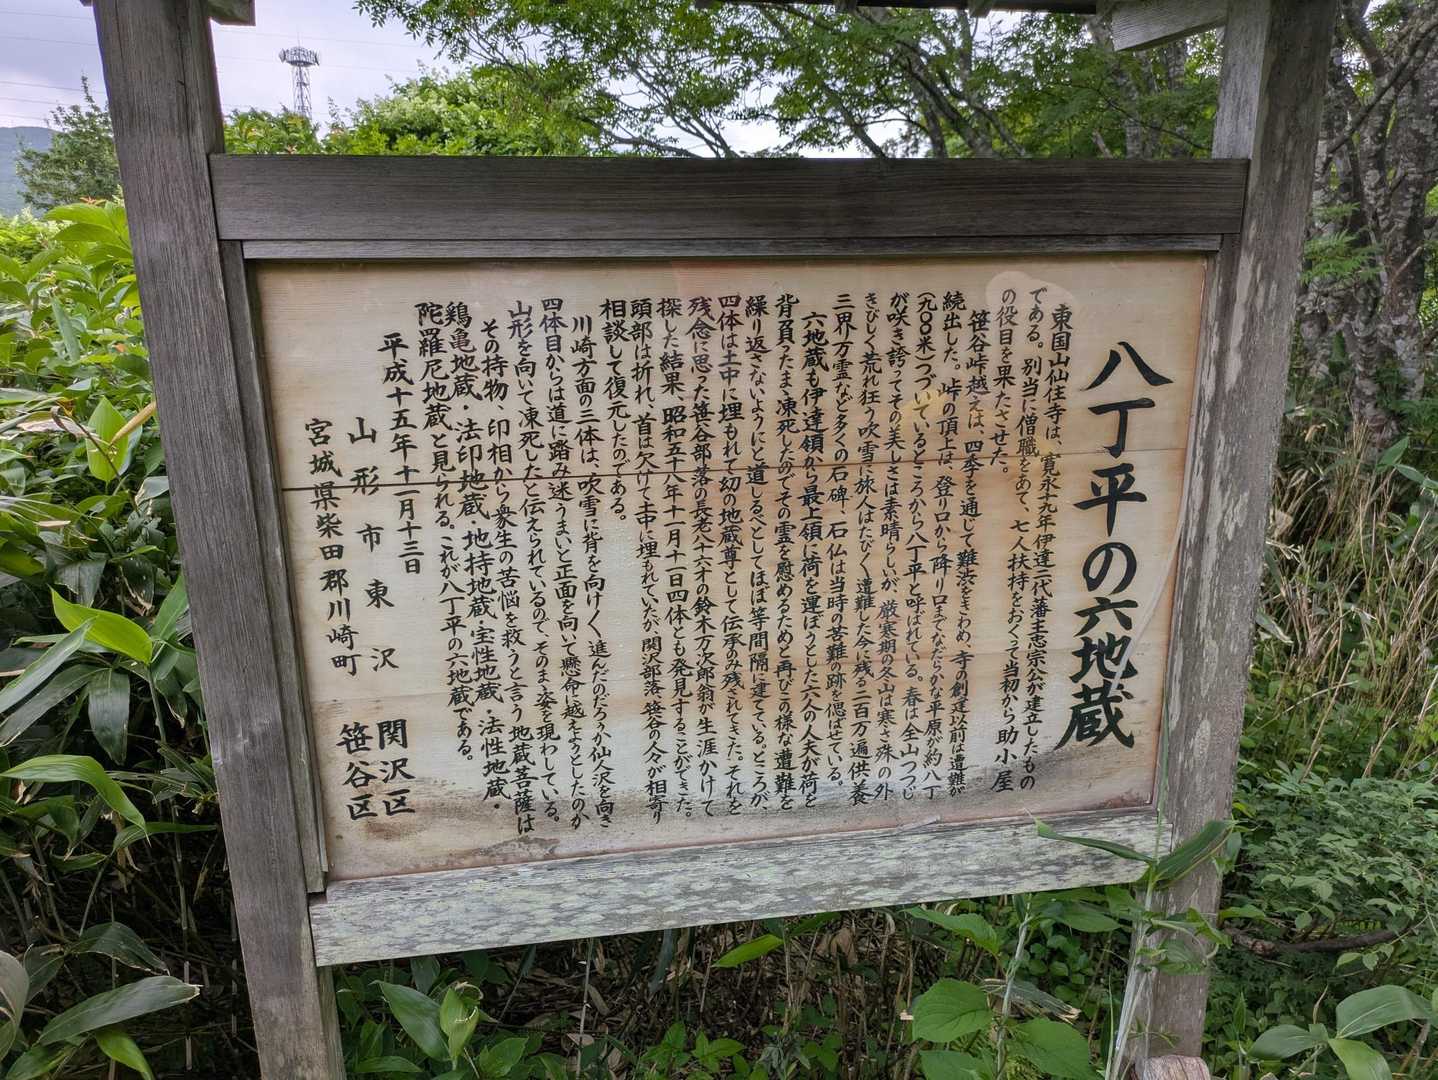 八丁平の六地蔵
東国山仙住寺は、寛永十九年伊達二代藩主忠宗公が建立したもの
である。別当に僧職をあて、七人扶持をおくって当初から助小屋
の役目を果たさせた。
笹谷峠越えは、四季を通じて難渋をきわめ、寺の創建以前は遭難が
続出した。峠の頂上は、登り口から降り口までなだらかな平原が約八丁
(九〇〇米)つづいているところから八丁平と呼ばれている。春は全山つつじ
が咲き誇ってその美しさは素晴らしいが、厳寒期の冬山は寒さ殊の外
きびしく荒れ狂う吹雪に旅人はたびたび遭難した今に残る二百万遍供養
三界万霊など多くの石碑、石仏は当時の苦難の跡を偲ばせている。
六地蔵も伊達領から最上領に荷を運ぼうとした六人の人夫が荷を
背負ったまゝ凍死したのでその霊を慰めるためと再びこの様な遭難を
繰り返さないようにと道しるべとしてほぼ等間隔に建ている。ところが、
四体は土中に埋もれて幻の地蔵尊として伝承のみ残されてきた。それを
残念に思った笹谷部落の長老八十六才の鈴木万次郎翁が生涯かけて
探した結果、昭和五十八年十一月十一日四体とも発見することができた。
頭部は折れ、首は欠けて土中に埋もれていたが、関沢部落、笹谷の人々が相寄り
相談して復元したのである。
川崎方面の三体は、吹雪に背を向けて進んだのだろうか仙人沢を向き
四体目からは道に踏み迷うまいと正面を向いて懸命に越えようとしたのか
山形を向いて凍死したと伝えられているので、そのまゝ姿を現わしている。
その持物、印相から衆生の苦悩を救うと言う地蔵菩薩は
鶏亀地蔵・法印地蔵・地持地蔵・宝性地蔵、法性地蔵・
陀羅尼地蔵と見られる。これが八丁平の六地蔵である。
平成十五年十一月十三日
山形市東沢 関沢区
宮城県柴田郡川崎町 笹谷区